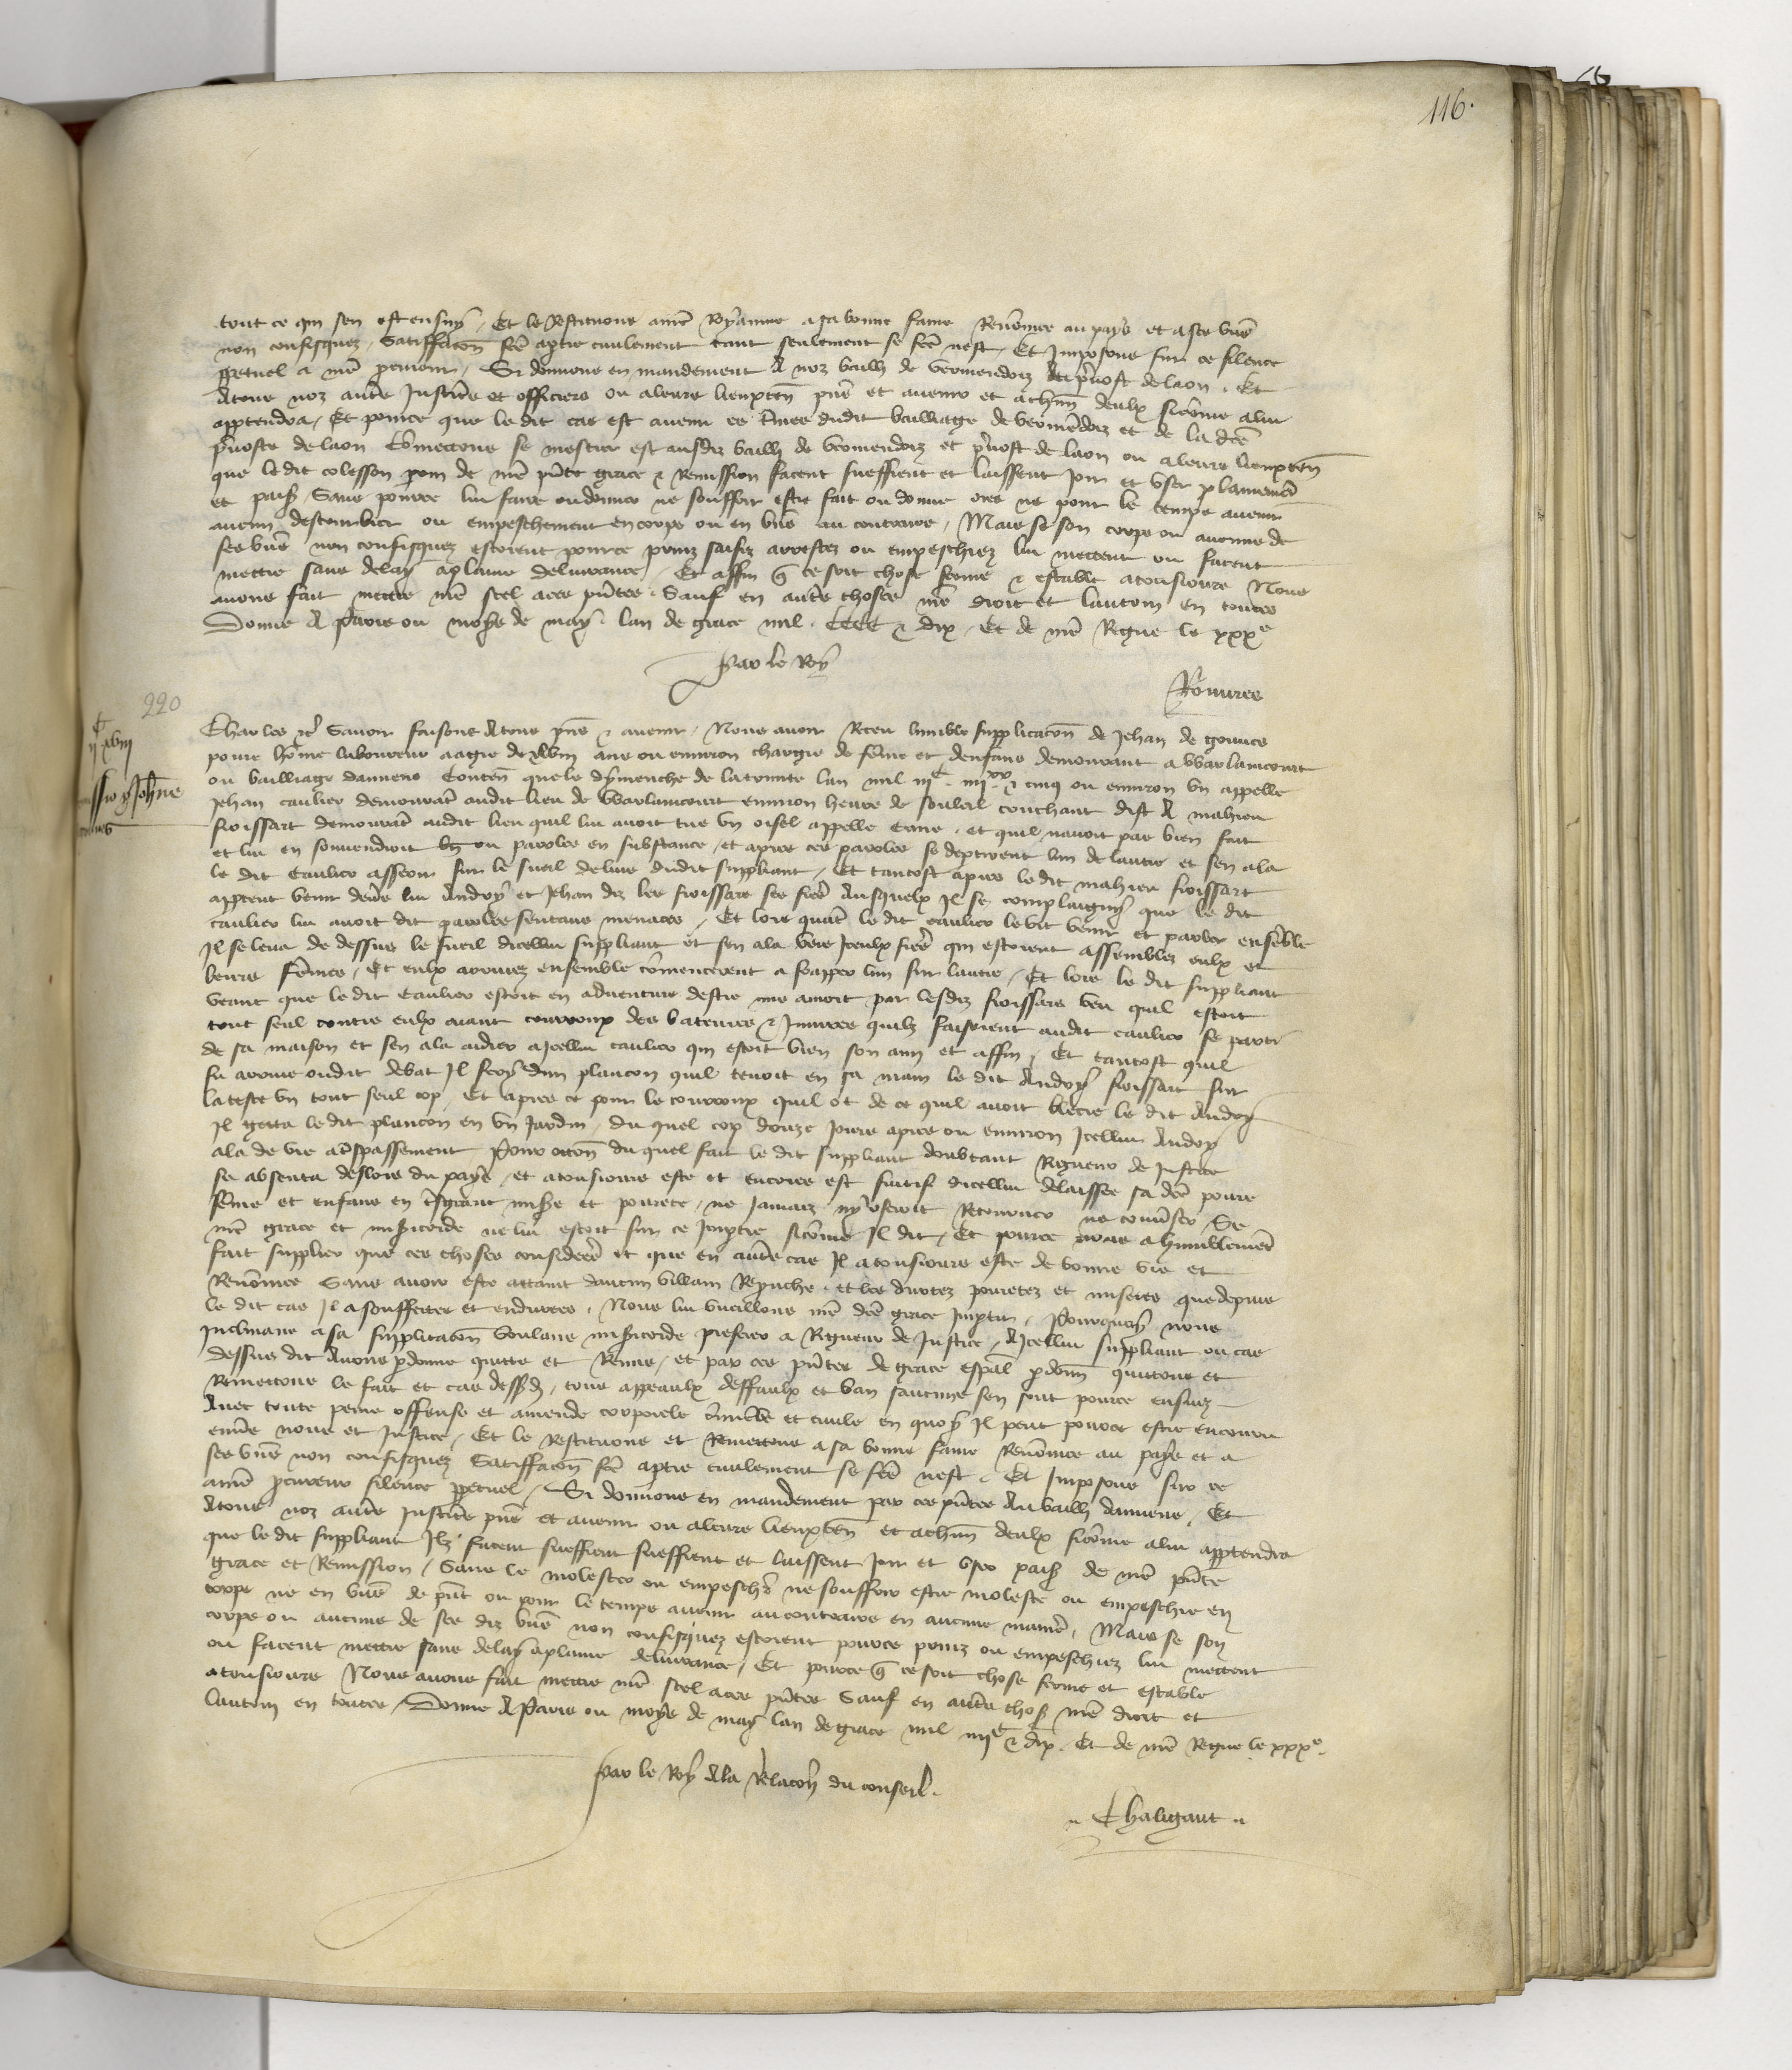 116.
tout ce qui sen est ensuy, Et le Restituons a sa bonne fame Renōmee au pays et a ses biēs
non confisquez, Satisfacōn fcē a ptie civilement tant seulement se fcē nest, Et Imposons sur ce silence
ppetuel a nrē procureur, Si donnons en mandement A noz bailli de vermendois et pŕvost de laon, Et
Atous noz autrēs Justicēs et officiers ou a leurs lieuxtenn̄ pn̄s et avenir et a chūn deulx sicōme a lui
appartendra, Et pource que le dit cas est avenu es t̄mes dudit bailliage de vermēdois et de la dcē
pŕvoste de laon Cōmettons se mestier est ausdiz bailli de vermendois et pŕvost de laon ou a leurs lieuxtenn̄
que le dit colesson de nrē pn̄te grace & Remission facent sueffrent et laissent joir et user plainemēt
et paisib̄ Sans pour ce lui faire ou donner ne souffrir estre fait ou donne ores ne pour le temps avenir
aucun destourbier ou empeschement en corps ou en biēs au contraire, Mais se son corps ou aucuns de
ses biēs non confisquez estoient pource prins saisiz arrestez ou empeschiez lui mettent ou facent
mettre sans delay a plaine delivrance, Et affin q̄ ce soit chose ferme & estable a tousiours Nous
avons fait mettre nrē scel a ces pn̄tes, Sauf en autrēs choses nrē droit et lautrui en toutes
Donne A Paris ou moys de may lan de grace mil CCCC & dix, Et de nrē Regne le xxxe
Par le Roy
220
Charles &c Savoir faisons Atous pn̄s & avenir, Nous avoir Receu lumble supplicacōn de Jehan de
povre hōme laboureur aagie de ans ou environ chargie de fēme et denfans demourant a Warlaincourt
ou bailliage damiens Contenn̄ que le dymenche de la trinite lan mil iijc iiijxx & cinq ou environ un appelle
Jehan caulier demourāt audit lieu de Warlaincourt environ heure de souleil couchant dist A mahieu
froissart demourāt audit lieu quil lui avoit tue un oisel appelle cane, et quil navoit pas bien fait
et lui en souvendroit ou paroles en substance, et apres ces paroles se deptirent lun de lautre et sen ala
le dit caulier asseoir sur le sueil de luis dudit suppliant, Et tantost apres le dit mahieu froissart
apperceut venir devers lui Andry et Jehan diz les froissars ses frērs Ausquelx Il se complaigny que le dit
caulier lui avoit dit paroles sentans menaces, Et lors quāt le dit caulier les vit venir et parler ensēble
Il se leva de dessus le sueil dicellui suppliant et sen ala vers iceulx frērs qui estoient assemblez eulx et
leurs fēmes, Et eulx arrivez ensemble cōmencerent a frapper lun sur lautre, Et lors le dit suppliant
veant que le dit caulier estoit en adventure destre mis a mort par lesdiz froissars veu quil estoit
tout seul contre eulx aiant courroux des bateures & Injures quilz faisoient audit caulier se parti
de sa maison et sen ala aidier a icellui caulier qui estoit bien son ami et affin, Et tantost quil
fu arrive oudit debat Il fery dun plancon quil tenoit en sa main le dit Andry froissart sur
la teste un tout seul cop, Et apres ce pour le courroux quil ot de ce quil avoit blecie le dit Andry
Il getta le dit plancon en un Jardin, du quel cop douze jours apres ou environ Icellui Andry
ala de vie a t̄spassement Pour occōn du quel fait le dit suppliant doubtant Rigueur de Justice
se absenta deslors du pays, et a tousiours este et encores est fuitif dicellui delaissee sa dcē povre
fēme et enfans en t̄sgrant misē et povrete, ne jamais ny oseroit Retourner ne convser, Se
nrē grace et miscorde ne lui estoit sur ce Imptie sicōme Il dit, Et pource nous a humblemēt
fait supplier que ces choses considerēs et que en autrē cas Il a tousiours este de bonne vie et
Renōmee Sans avoir este attaint daucun villain Reprouche, et les durtez povretez et miseres que depuis
le dit cas Il a souffertes et endurees, Nous lui vueillons nrē dcē grace Imptir, Pourquoy nous
Inclinans a sa supplicacōn voulans miscorde preferer a Rigueur de Justice, A Icellui suppliant ou cas
dessus dit Avons pdonne quitte et Remis, et par ces pn̄tes de grace espāl pdonn̄ quittons et
Remettons le fait et cas dessd, tous appeaulx deffaulx et ban saucuns sen sont pource ensuiz
Avec toute peine offense et amende corporele crim̄le et civile en quoy Il peut pour ce estre encouru
envs̄ nous et Justice, Et le Restituons et Remettons a sa bonne fame Renōmee au pays et a
ses biēs non confisquez Satiffacōn fcē a ptie civilement se fcē nest, Et Imposons sur ce
a nrē procureur silence ppetuel, Si donnons en mandement par ces pn̄tes Au bailli damiens, Et
Atous noz autrēs Justicēs pn̄s et avenir ou a leurs lieuxtenn̄ et a chūn deulx sicōme a lui apptendra
que le dit suppliant Ilz facent sueffrent sueffrent et laissent joir et user paisib̄ de nrē pn̄te
grace et Remission, Sans le molester ou empeschēr ne souffrir estre moleste ou empeschie en
corps ne en biēs de pn̄t ou pour le temps avenir au contraire en aucune manier̄, Mais se son
corps ou aucuns de ses diz biēs non confisquez estoient pource prins ou empeschiez lui mettent
ou facent mettre sans delay a plaine delivrance, Et pource q̄ ce soit chose ferme et estable
a tousiours Nous avons fait mettre nrē scel a ces pn̄tes Sauf en autrēs chos̄ nrē droit et
lautrui en toutes, Donne A Paris ou moys de may lan de grace mil iiijc & dix, Et de nrē Regne le xxxe.
Par le Roy A la Relacōn du conseil.
Chaligaut